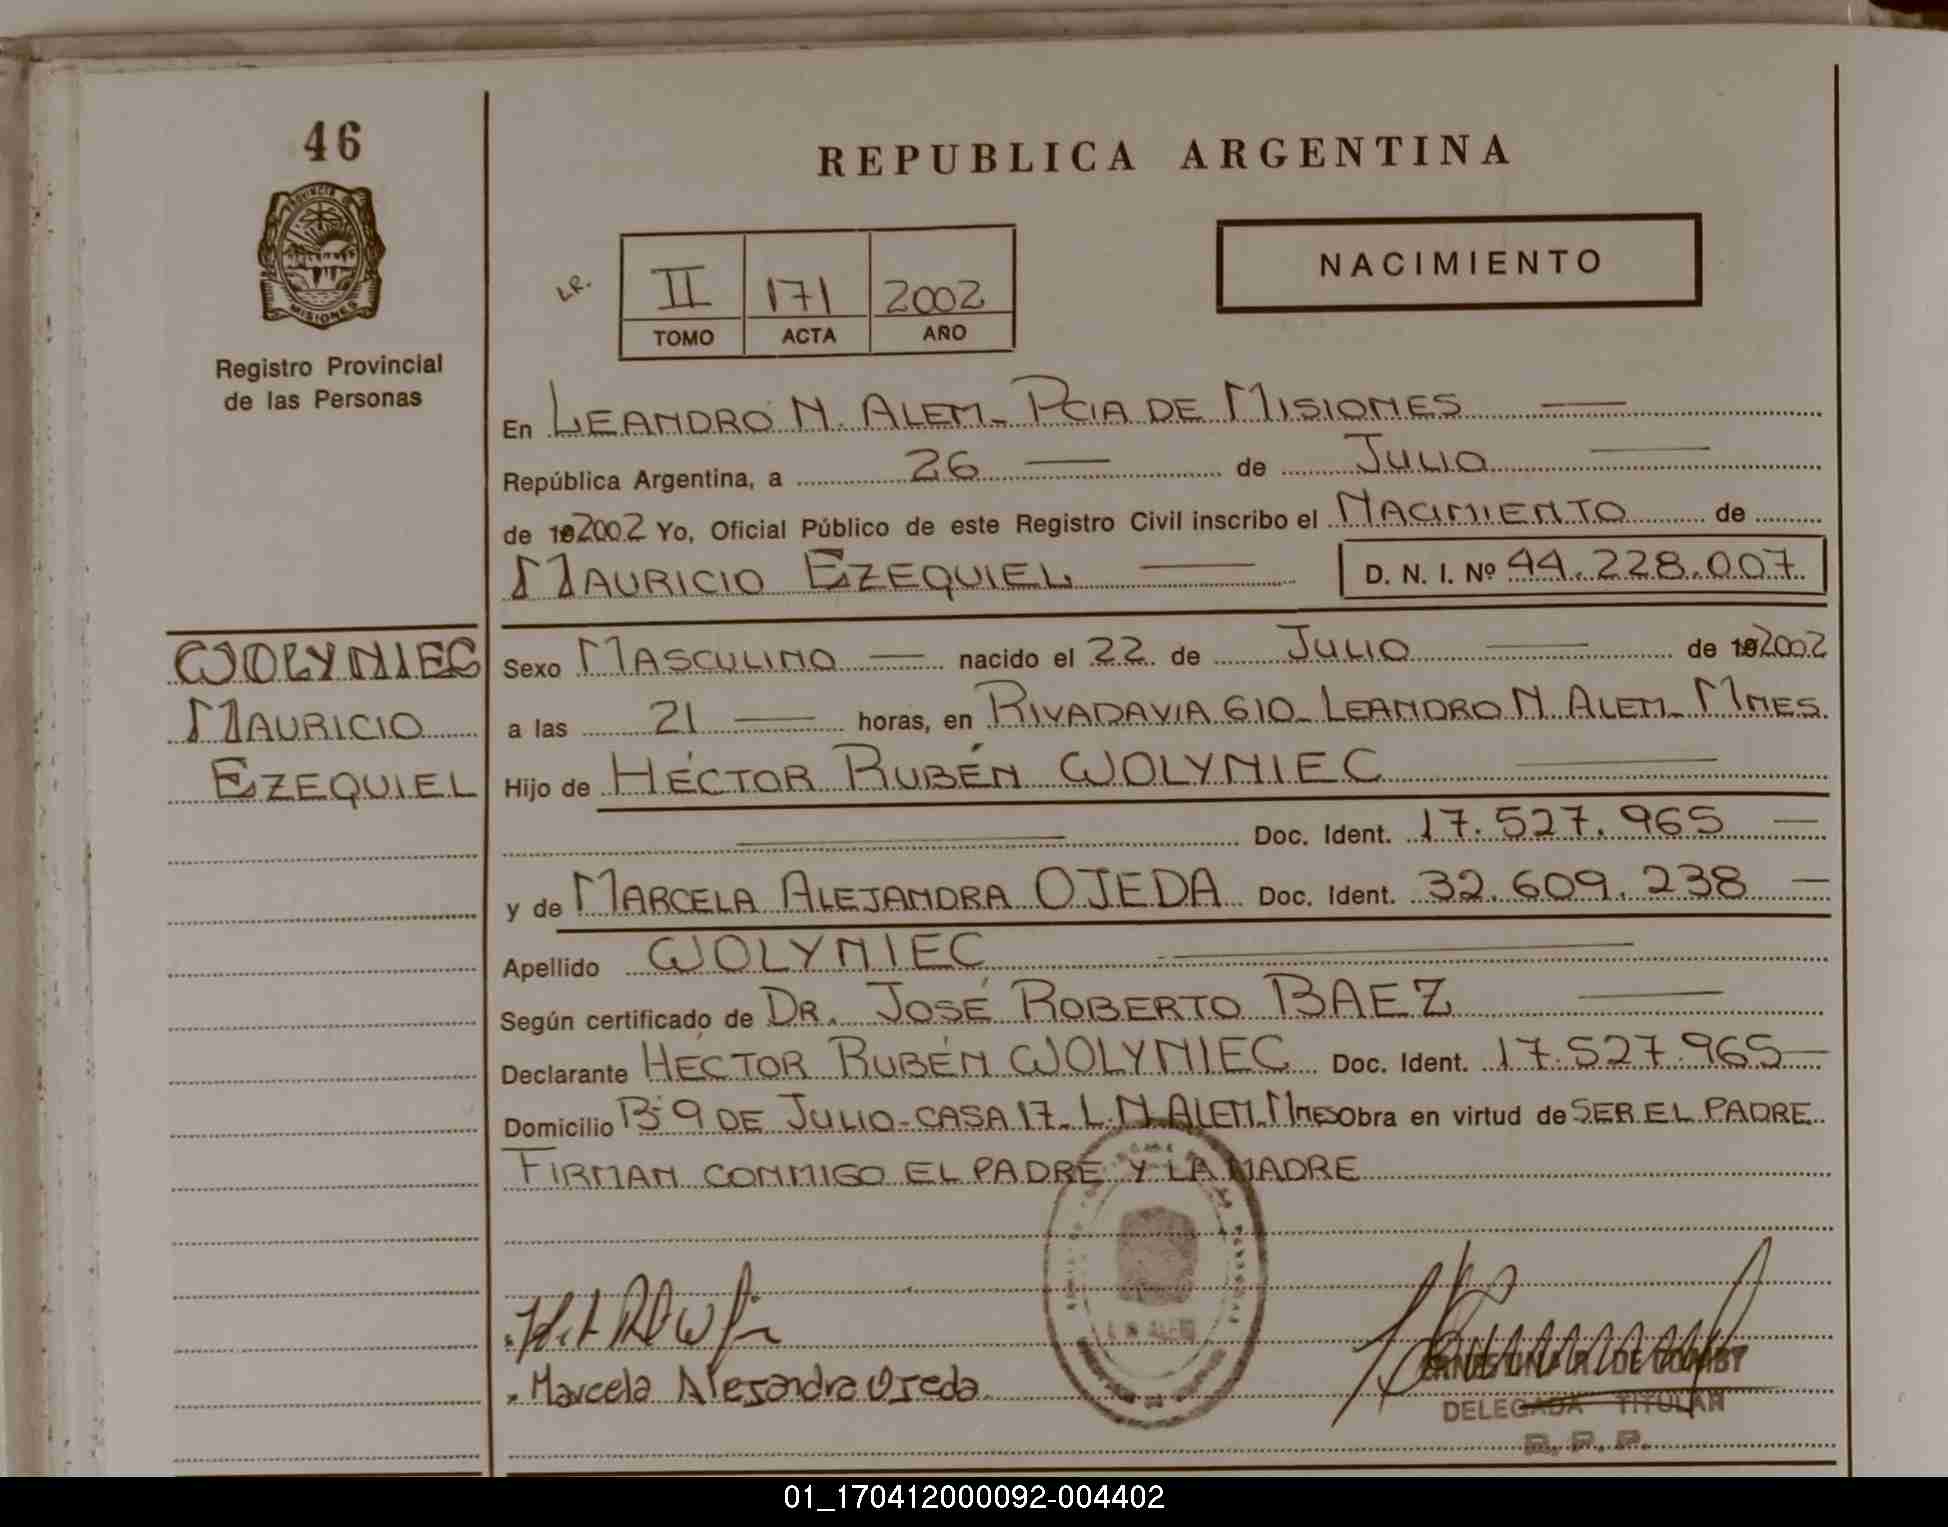 46
REPUBLICA ARGENTINA
PROVINCIA DE
MISIONES
Registro Provincial
de las Personas
NACIMIENTO
L.R. II 171 2002
TOMO ACTA AÑO
En LEANDRO N. ALEM - PCIA DE MISIONES
República Argentina, a 26 de JULIO
de 192002 Yo, Oficial Público de este Registro Civil inscribo el NACIMIENTO de
MAURICIO EZEQUIEL D. N. I. Nº 44.228.007
WOLYNIEC
MAURICIO
EZEQUIEL
Sexo MASCULINO nacido el 22 de JULIO de 192002
a las 21 horas, en RIVADAVIA 610 - LEANDRO N. ALEM - MNES.
Hijo de HÉCTOR RUBÉN WOLYNIEC
Doc. Ident. 17.527.965
y de MARCELA ALEJANDRA OJEDA Doc. Ident. 32.609.238
Apellido WOLYNIEC
Según certificado de DR. JOSÉ ROBERTO BAEZ
Declarante HÉCTOR RUBÉN WOLYNIEC Doc. Ident. 17.527.965
Domicilio Bº 9 DE JULIO - CASA 17 - L. N. ALEM. MNES Obra en virtud de SER EL PADRE.
FIRMAN CONMIGO EL PADRE Y LA MADRE
Marcela Alejandra Ojeda
DELEGADA TITULAR
R. P. P.
01_170412000092-004402